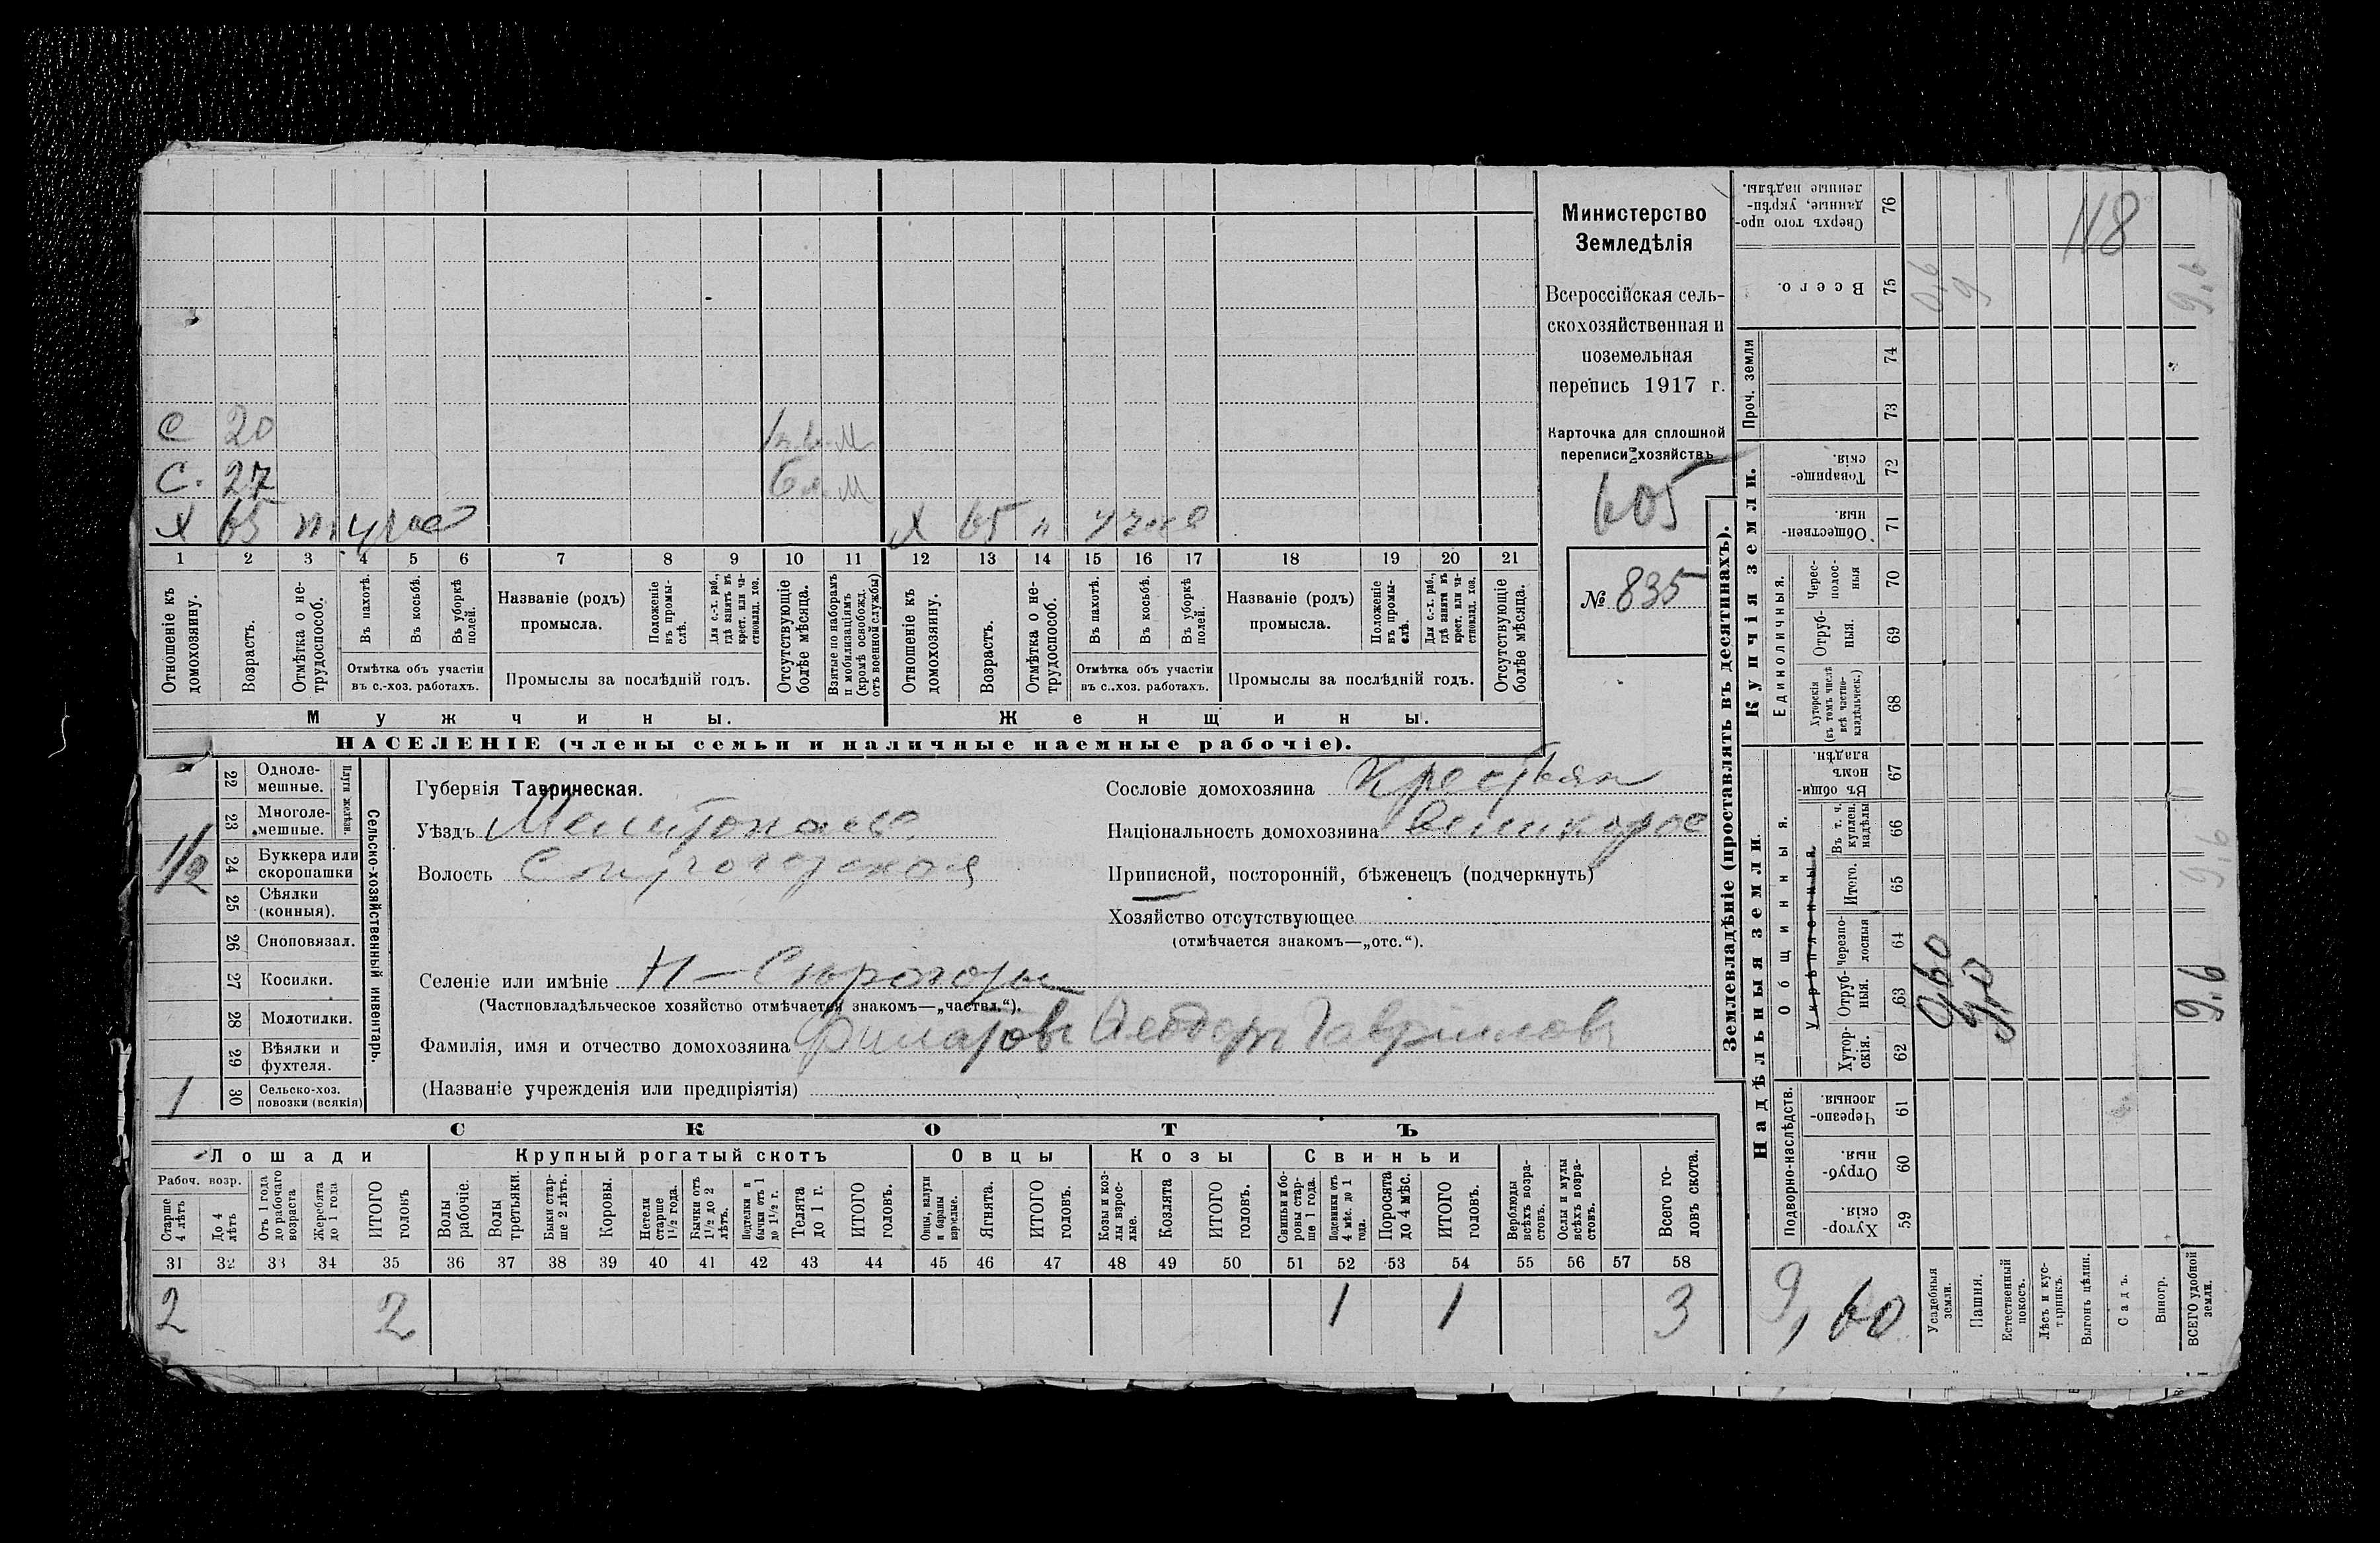 Министерство
Земледѣлія
Всероссійская сель-
скохозяйственная и
поземельная
перепись 1917 г.
Карточка для сплошной
переписи хозяйствъ
605
№ 835
118
С 20
С. 27 М
Х 65 Х 65
1 2 3 4 5 6 7 8 9 10 11 12 13 14 15 16 17 18 19 20 21
Отношеніе къ домохозяину.
Возрастъ.
Отмѣтка о не-трудоспособ.
Въ пахотѣ.
Въ косьбѣ.
Въ уборкѣ полей.
Отмѣтка объ участіи
въ с.-хоз. работахъ.
Названіе (родъ)
промысла.
Положеніе въ промы-слѣ.
Для с.-х. раб., гдѣ занятъ въ крест. или ча-стновлад. хоз.
Промыслы за послѣдній годъ.
Отсутствующіе болѣе мѣсяца.
Взятые по наборамъ и мобилизаціямъ (кромѣ освобожд. отъ военной службы)
Отношеніе къ домохозяину.
Возрастъ.
Отмѣтка о не-трудоспособ.
Въ пахотѣ.
Въ косьбѣ.
Въ уборкѣ полей.
Отмѣтка объ участіи
въ с.-хоз. работахъ.
Названіе (родъ)
промысла.
Положеніе въ промы-слѣ.
Для с.-х. раб., гдѣ занята въ крест. или ча-стновлад. хоз.
Промыслы за послѣдній годъ.
Отсутствующіе болѣе мѣсяца.
Мужчины. Женщины.
НАСЕЛЕНІЕ (члены семьи и наличные наемные рабочіе).
22 Одноле-мешные.
23 Многоле-мешные.
Плуги желѣзн.
24 Буккера или скоропашки 1/2
25 Сѣялки (конныя).
26 Сноповязал.
27 Косилки.
28 Молотилки.
29 Вѣялки и фухтеля.
30 Сельско-хоз. повозки (всякія) 1
Сельско-хозяйственный инвентарь.
Губернія Таврическая.
Уѣздъ
Волость
Сословіе домохозяина Крестьян
Національность домохозяина
Приписной, посторонній, бѣженецъ (подчеркнуть)
Хозяйство отсутствующее
(отмѣчается знакомъ—„отс.“).
Селеніе или имѣніе Н-Сѣрогозы
(Частновладѣльческое хозяйство отмѣчается знакомъ—„частвл.“).
Фамилія, имя и отчество домохозяина Филатовъ Феодоръ Гавриловъ
(Названіе учрежденія или предпріятія)
СКОТЪ
Лошади Крупный рогатый скотъ Овцы Козы Свиньи
Рабоч. возр.
Старше 4 лѣтъ
До 4 лѣтъ
Отъ 1 года до рабочаго возраста
Жеребята до 1 года
ИТОГО головъ
Волы рабочіе.
Волы третьяки.
Быки стар-ше 2 лѣтъ.
Коровы.
Нетели старше 1 1/2 года.
Бычки отъ 1 1/2 до 2 лѣтъ.
Подтелки и бычки отъ 1 до 1 1/2 г.
Телята до 1 г.
ИТОГО головъ.
Овцы, валухи и бараны взрослые.
Ягнята.
ИТОГО головъ.
Козы и коз-лы взрос-лые.
Козлята
ИТОГО головъ.
Свиньи и бо-ровы стар-ше 1 года.
Подсвинки отъ 4 мѣс. до 1 года.
Поросята до 4 мѣс.
ИТОГО головъ.
Верблюды всѣхъ возра-стовъ.
Ослы и мулы всѣхъ возра-стовъ.
Всего го-ловъ скота.
31 32 33 34 35 36 37 38 39 40 41 42 43 44 45 46 47 48 49 50 51 52 53 54 55 56 57 58
2 2 1 1 3
Землевладѣніе (проставлять въ десятинахъ).
Купчія земли.
Надѣльныя земли.
Сверхъ того про-данные, укрѣп-ленные надѣлы. 76
Всего. 75
Проч. земли 74 73
Товарище-скія. 72
Обществен-ныя. 71
Единоличныя.
Черес-полос-ныя 70
Отруб-ныя. 69
Хуторскія (въ томъ числѣ всѣ частно-владѣльческ.) 68
Въ общи-номъ владѣн. 67
Общинныя.
Укрѣпленныя.
Въ т. ч. куплен. надѣлы 66
Итого. 65
Черезпо-лосныя 64
Отруб-ныя. 63
Хутор-скія. 62
Подворно-наслѣдств.
Черезпо-лосныя. 61
Отруб-ныя. 60
Хутор-скія. 59
0,6
9
9,6
9,6
9,6
9,60
Усадебныя земли.
Пашня.
Естественный покосъ.
Лѣсъ и кус-тарникъ.
Выгонъ цѣлин.
Садъ.
Виногр.
ВСЕГО удобной земли.